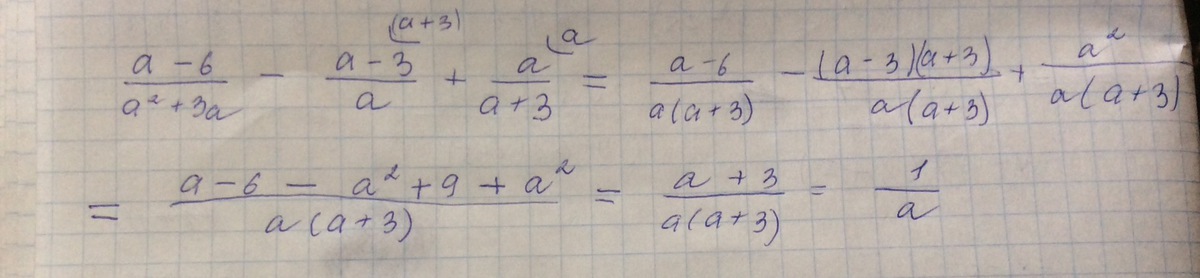 (a+3) a
(a-6)/(a²+3a) - (a-3)/a + a/(a+3) = (a-6)/(a(a+3)) - ((a-3)(a+3))/(a(a+3)) + a²/(a(a+3))
= (a-6-a²+9+a²)/(a(a+3)) = (a+3)/(a(a+3)) = 1/a